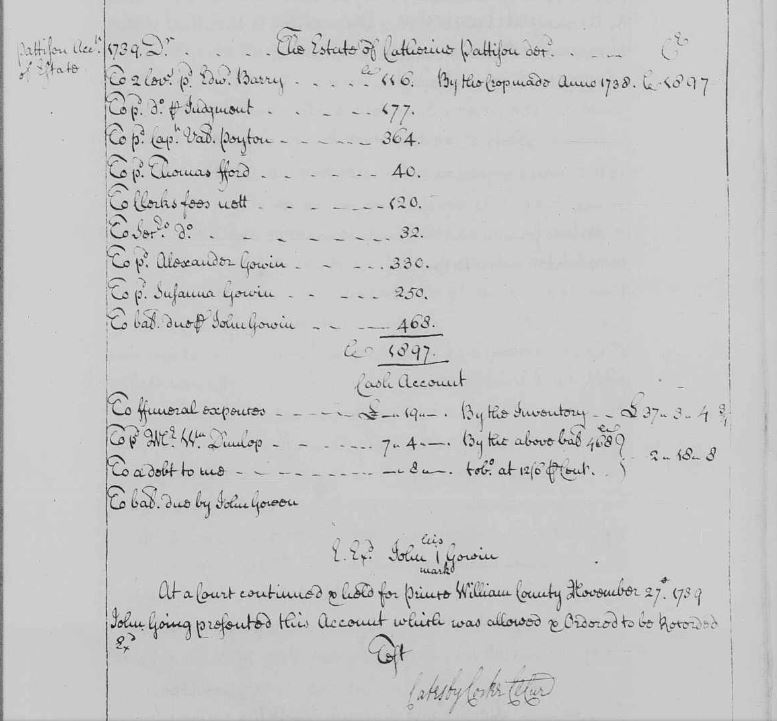 Pattison Acct. 1739. Dr. The Estate of Catherine Pattison decd. Cr
of Estate
To 2 Levs. pd. Edwd. Barry 116. By the Crop made Anno 1738. 1897
To pd. Do. Judgment 177.
To pd. Capt. Val. Peyton 364.
To pd. Thomas fford 40.
To Clerks fees nett 120.
To do. 32.
To pd. Alexander Gowin 330.
To pd. Susanna Gowin 250.
To bal. due John Gowin 468.
1897.
Cash Account
To ffuneral expences £ „ 19 „ — By the Inventory £ 37 „ 3 „ 4
To pd. Mr. Wm. Dunlop 7 „ 4 „ — By the above bal. 468
To a debt to me — „ 8 „ — tobo. at 12/6 Cent. 2 „ 18 „ 8
To bal. due by John Gowen
E. Ex. John I Gowin
his
mark
At a Court continued & held for Prince William County November 27. 1739
John Going presented this Account which was allowed & Ordered to be Recorded
Ex
Test
Catesby Cocke